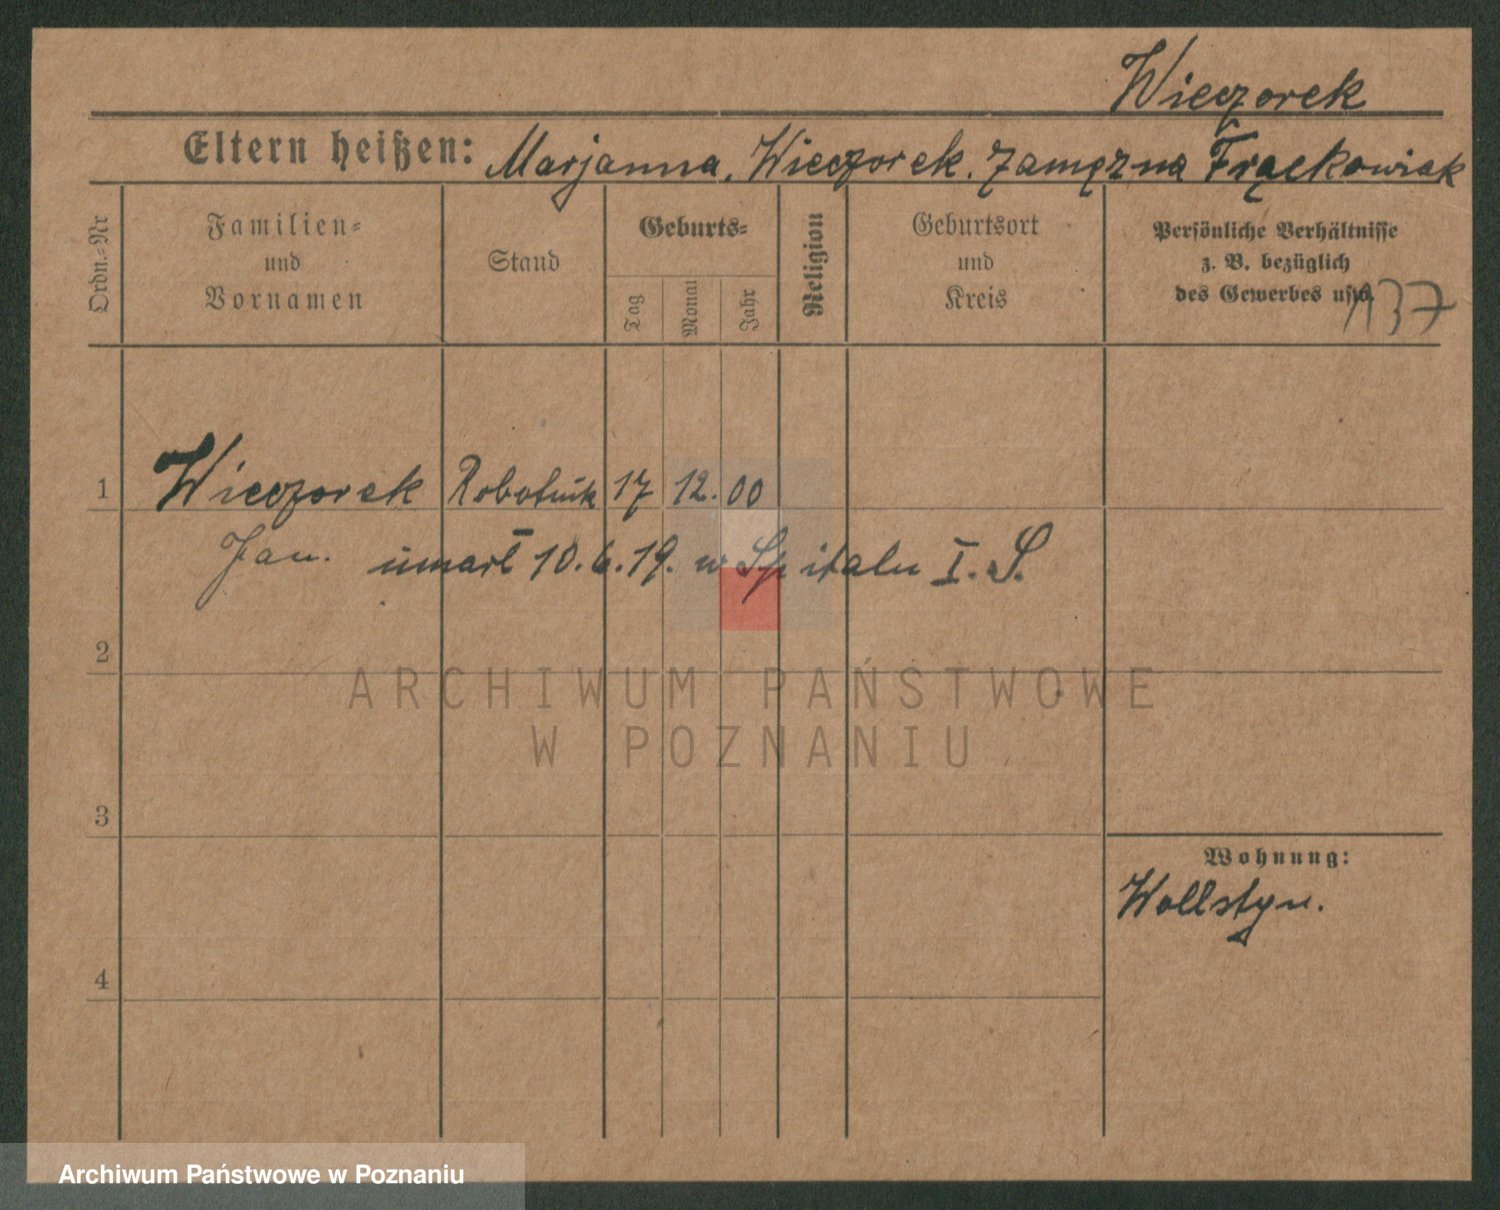 Wieczorek
Eltern heißen: Marjanna, Wieczorek. zamężna Frąckowiak
Ordn.-Nr
Familien-
und
Vornamen
Stand
Geburts-
Tag
Monat
Jahr
Religion
Geburtsort
und
Kreis
Persönliche Verhältnisse
z. B. bezüglich
des Gewerbes usw.
137
1 Wieczorek Robotnik 17 12. 00
Jan. umarł 10. 6. 19. w Spitalu I. S.
2
ARCHIWUM PAŃSTWOWE
W POZNANIU
3
Wohnung:
Wollstyn.
4
Archiwum Państwowe w Poznaniu